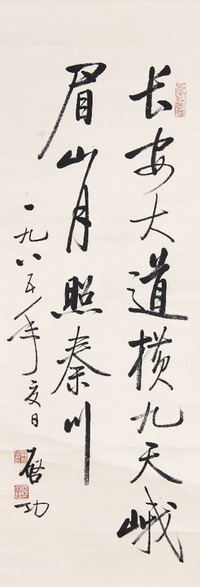 长安大道横九天峨
眉山月照秦川
一九八五年夏日
启功